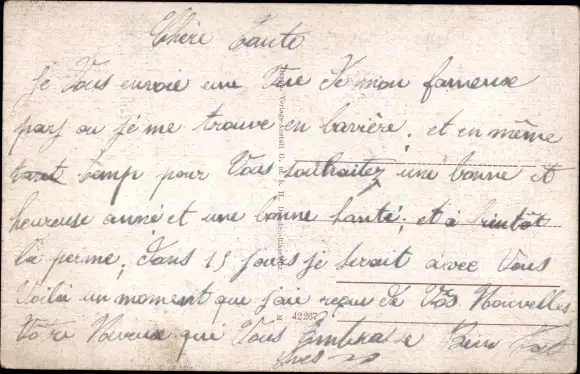 Chère Tante
Je Vous envoie une Vue de mon fameux
pays ou je me trouve en bavière. et en même
temp pour Vous souhaitez une bonne et
heureuse anné et une bonne santé, et a bientôt
la perme, dans 15 jours je serait avec Vous
Voila un moment que j'aie reçue de Vos Nouvelles
Votre Neveux qui Vous Embrasse Bien Fort
Yves
M 42267